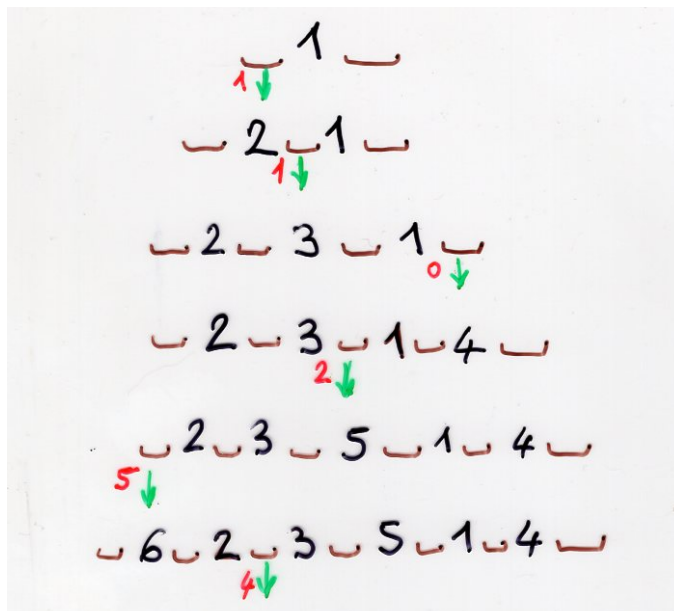 1
1
2 1
1
2 3 1
0
2 3 1 4
2
2 3 5 1 4
5
6 2 3 5 1 4
4